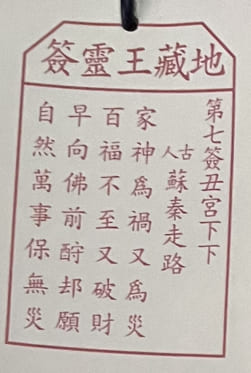 地藏王靈簽
第七簽丑宮下下
古人蘇秦走路
家神為禍又為災
百福不至又破財
早向佛前酧却願
自然萬事保無災